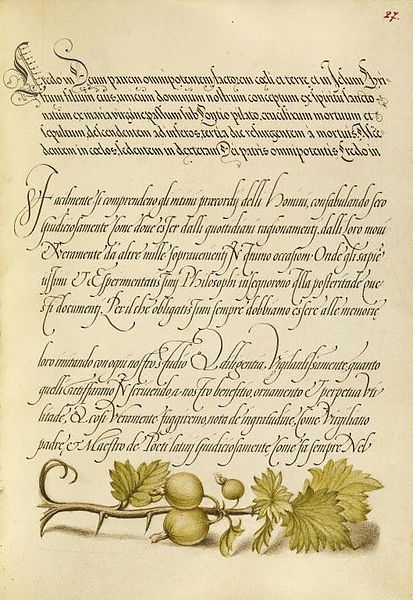 27.
Credo in Deum patrem omnipotentem, factorem coeli et terre et in Jesum Chri
stum filium eius, unicum dominum nostrum conceptum ex spiritu sancto
natum ex maria virgine passum sub Pontio pilato, crucifixum mortuum et
sepultum descendentem ad inferos, tertia die resurgentem a mortuis, Ascen
dentem in coelos, sedentem in dexteram Dei patris omnipotentis. Credo in
Facilmente si comprendeno gli intimi precordij delli Homini, confabulando seco
giudiciosamente, come dove esser dalli quottidiani ragionamenti, dalli loro moui
Veramente da altre mille sopravenienti in qualche occasion. Onde gli sapie
tissimi et Esperimentatissimi Philosophi insegniorono alla posteritade que
sti documenti. Per il che obligatissimi sempre dobbiamo essere alle memorie
loro imitando con ogni nostro studio et diligentia. Vigilantissamente, quanto
quelli affatticarono servendo, a nostro benefitio, ornamento et perpetua Vti
litade, et cosi Veramente fuggiremo, nota de ingratitudine, come Virgiliano
padre, et Maestro de Poeti latini giudiciosamente come fa sempre Nel